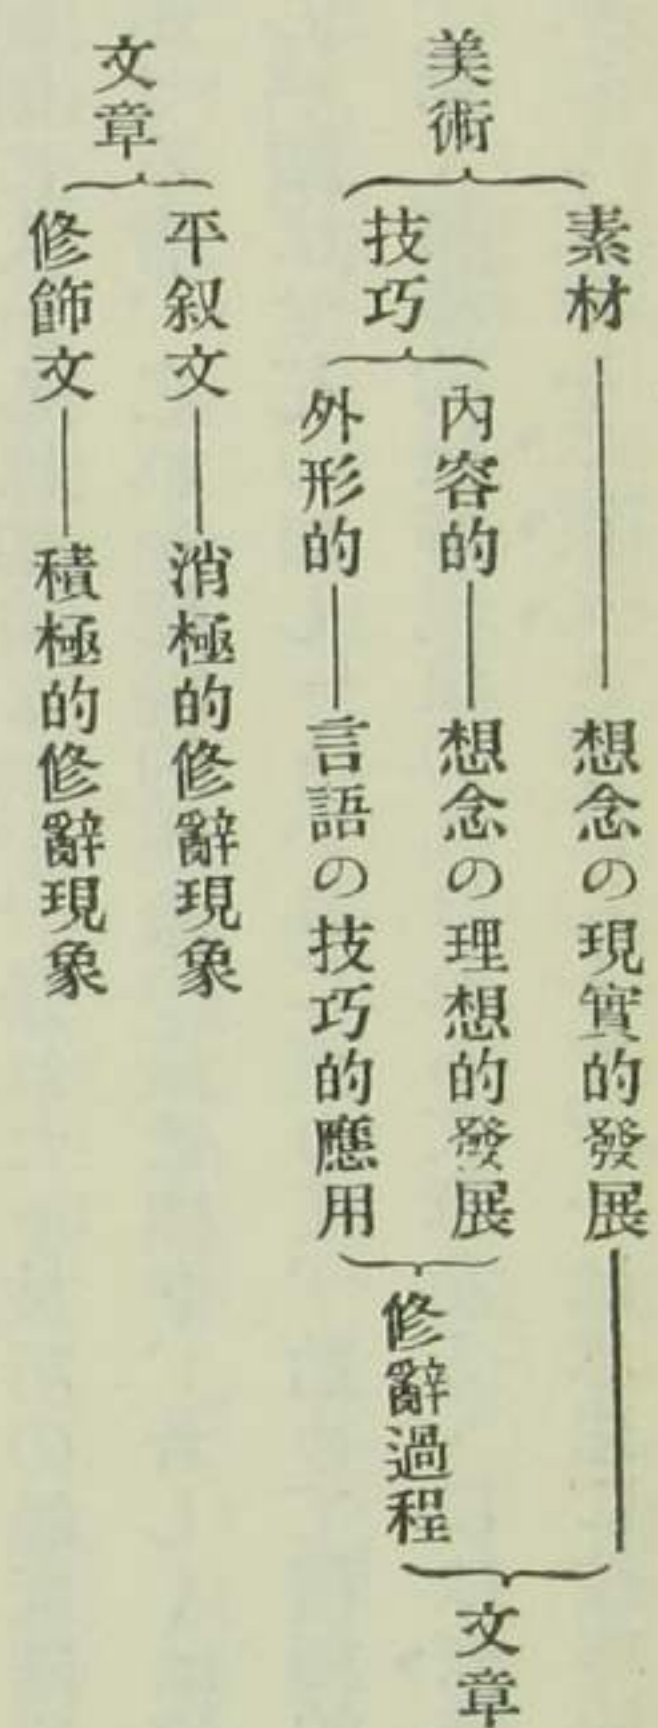 美術
素材
想念の現實的發展
技巧
內容的
想念の理想的發展
外形的
言語の技巧的應用
修辭過程
文章
文章
平叙文
消極的修辭現象
修飾文
積極的修辭現象